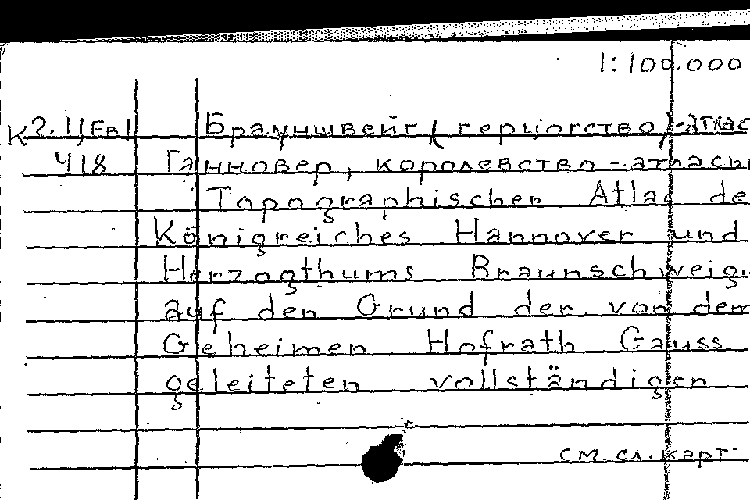 1:100.000
К2. Ц Ев1 Брауншвейг (герцогство)-атлас
Ч18 Ганновер, королевство-атласы
Topographischer Atlas de
Königreiches Hannover und
Herzogthums Braunschweig
auf den Grund der von dem
Geheimen Hofrath Gauss
geleiteten vollständigen
см. сл. карт.